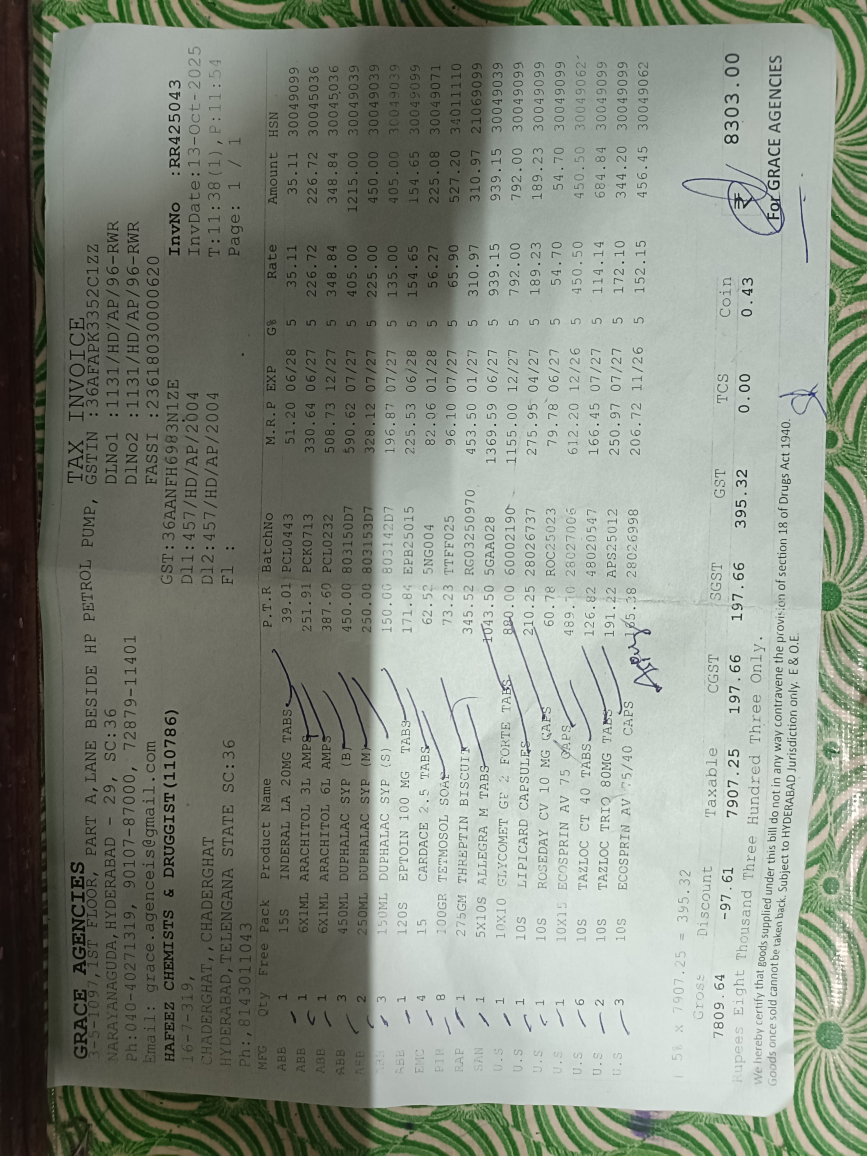 GRACE AGENCIES TAX INVOICE
3-5-1097,1ST FLOOR, PART A,LANE BESIDE HP PETROL PUMP, GSTIN :36AFAPK3352C1ZZ
NARAYANAGUDA,HYDERABAD - 29, SC:36 DLNo1 :1131/HD/AP/96-RWR
Ph:040-40271319, 90107-87000, 72879-11401 DlNo2 :1131/HD/AP/96-RWR
Email: grace.agenceis@gmail.com FASSI :23618030000620
HAFEEZ CHEMISTS & DRUGGIST(110786) GST:36AANFH6983N1ZE InvNo :RR425043
16-7-319, Dl1:457/HD/AP/2004 InvDate:13-Oct-2025
CHADERGHAT,,CHADERGHAT Dl2:457/HD/AP/2004 T:11:38(1),P:11:54
HYDERABAD,TELENGANA STATE SC:36 Fl : Page: 1 / 1
Ph:,8143011043
MFG Qty Free Pack Product Name P.T.R BatchNo M.R.P EXP G% Rate Amount HSN
ABB 1 15S INDERAL LA 20MG TABS 39.01 PCL0443 51.20 06/28 5 35.11 35.11 30049099
ABB 1 6X1ML ARACHITOL 3L AMPS 251.91 PCK0713 330.64 06/27 5 226.72 226.72 30045036
ABB 1 6X1ML ARACHITOL 6L AMPS 387.60 PCL0232 508.73 12/27 5 348.84 348.84 30045036
ABB 3 450ML DUPHALAC SYP (B) 450.00 803150D7 590.62 07/27 5 405.00 1215.00 30049039
ABB 2 250ML DUPHALAC SYP (M) 250.00 803153D7 328.12 07/27 5 225.00 450.00 30049039
3 150ML DUPHALAC SYP (S) 150.00 803142D7 196.87 07/27 5 135.00 405.00 30049039
ABB 1 120S EPTOIN 100 MG TABS 171.84 EPB25015 225.53 06/28 5 154.65 154.65 30049099
EMC 4 15 CARDACE 2.5 TABS 62.52 5NG004 82.06 01/28 5 56.27 225.08 30049071
8 100GR TETMOSOL SOAP 73.23 TTFF025 96.10 07/27 5 65.90 527.20 34011110
RAP 1 275GM THREPTIN BISCUIT 345.52 RG03250970 453.50 01/27 5 310.97 310.97 21069099
SAN 1 5X10S ALLEGRA M TABS 1043.50 5GAA028 1369.59 06/27 5 939.15 939.15 30049039
U.S 1 10X10 GLYCOMET GP 2 FORTE TABS 880.00 60002190 1155.00 12/27 5 792.00 792.00 30049099
U.S 1 10S LIPICARD CAPSULES 210.25 28026737 275.95 04/27 5 189.23 189.23 30049099
U.S 1 10S ROSEDAY CV 10 MG CAPS 60.78 ROC25023 79.78 06/27 5 54.70 54.70 30049099
U.S 1 10X15 ECOSPRIN AV 75 CAPS 28027006 612.20 12/26 5 450.50 450.50 30049062
U.S 6 10S TAZLOC CT 40 TABS 126.82 48020547 166.45 07/27 5 114.14 684.84 30049099
U.S 2 10S TAZLOC TRIO 80MG TABS 191.22 APS25012 250.97 07/27 5 172.10 344.20 30049099
U.S 3 10S ECOSPRIN AV 75/40 CAPS 165.38 28026998 206.72 11/26 5 152.15 456.45 30049062
5% x 7907.25 = 395.32
Gross Discount Taxable CGST SGST GST TCS Coin
7809.64 -97.61 7907.25 197.66 197.66 395.32 0.00 0.43 ₹ 8303.00
Rupees Eight Thousand Three Hundred Three Only.
We hereby certify that goods supplied under this bill do not in any way contravene the provision of section 18 of Drugs Act 1940.
Goods once sold cannot be taken back. Subject to HYDERABAD Jurisdiction only. E & O.E. For GRACE AGENCIES